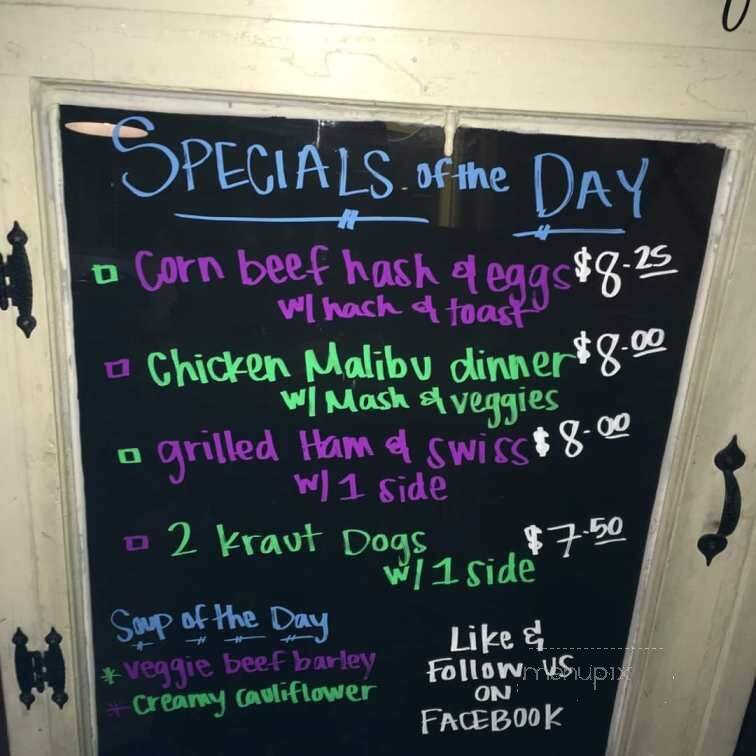 SPECIALS of the DAY
Corn beef hash & eggs $8.25
w/ hash & toast
Chicken Malibu dinner $8.00
w/ Mash & veggies
grilled Ham & swiss $8.00
w/ 1 side
2 Kraut Dogs $7.50
w/ 1 side
Soup of the Day
* veggie beef barley
* Creamy cauliflower
Like &
Follow US
ON
FACEBOOK
menupix